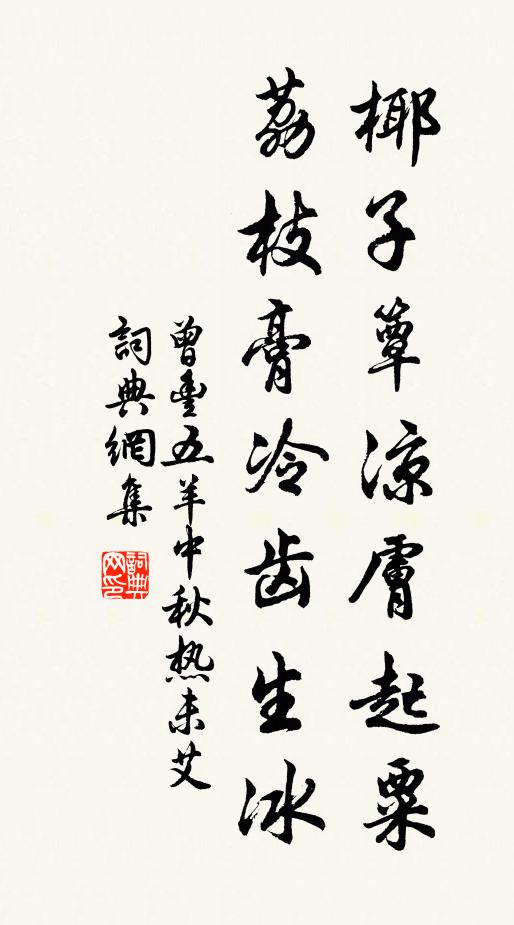 椰子簟凉膚起粟
荔枝膏冷齿生冰
曾豊五羊中秋热未艾
詞典網集
詞典网印